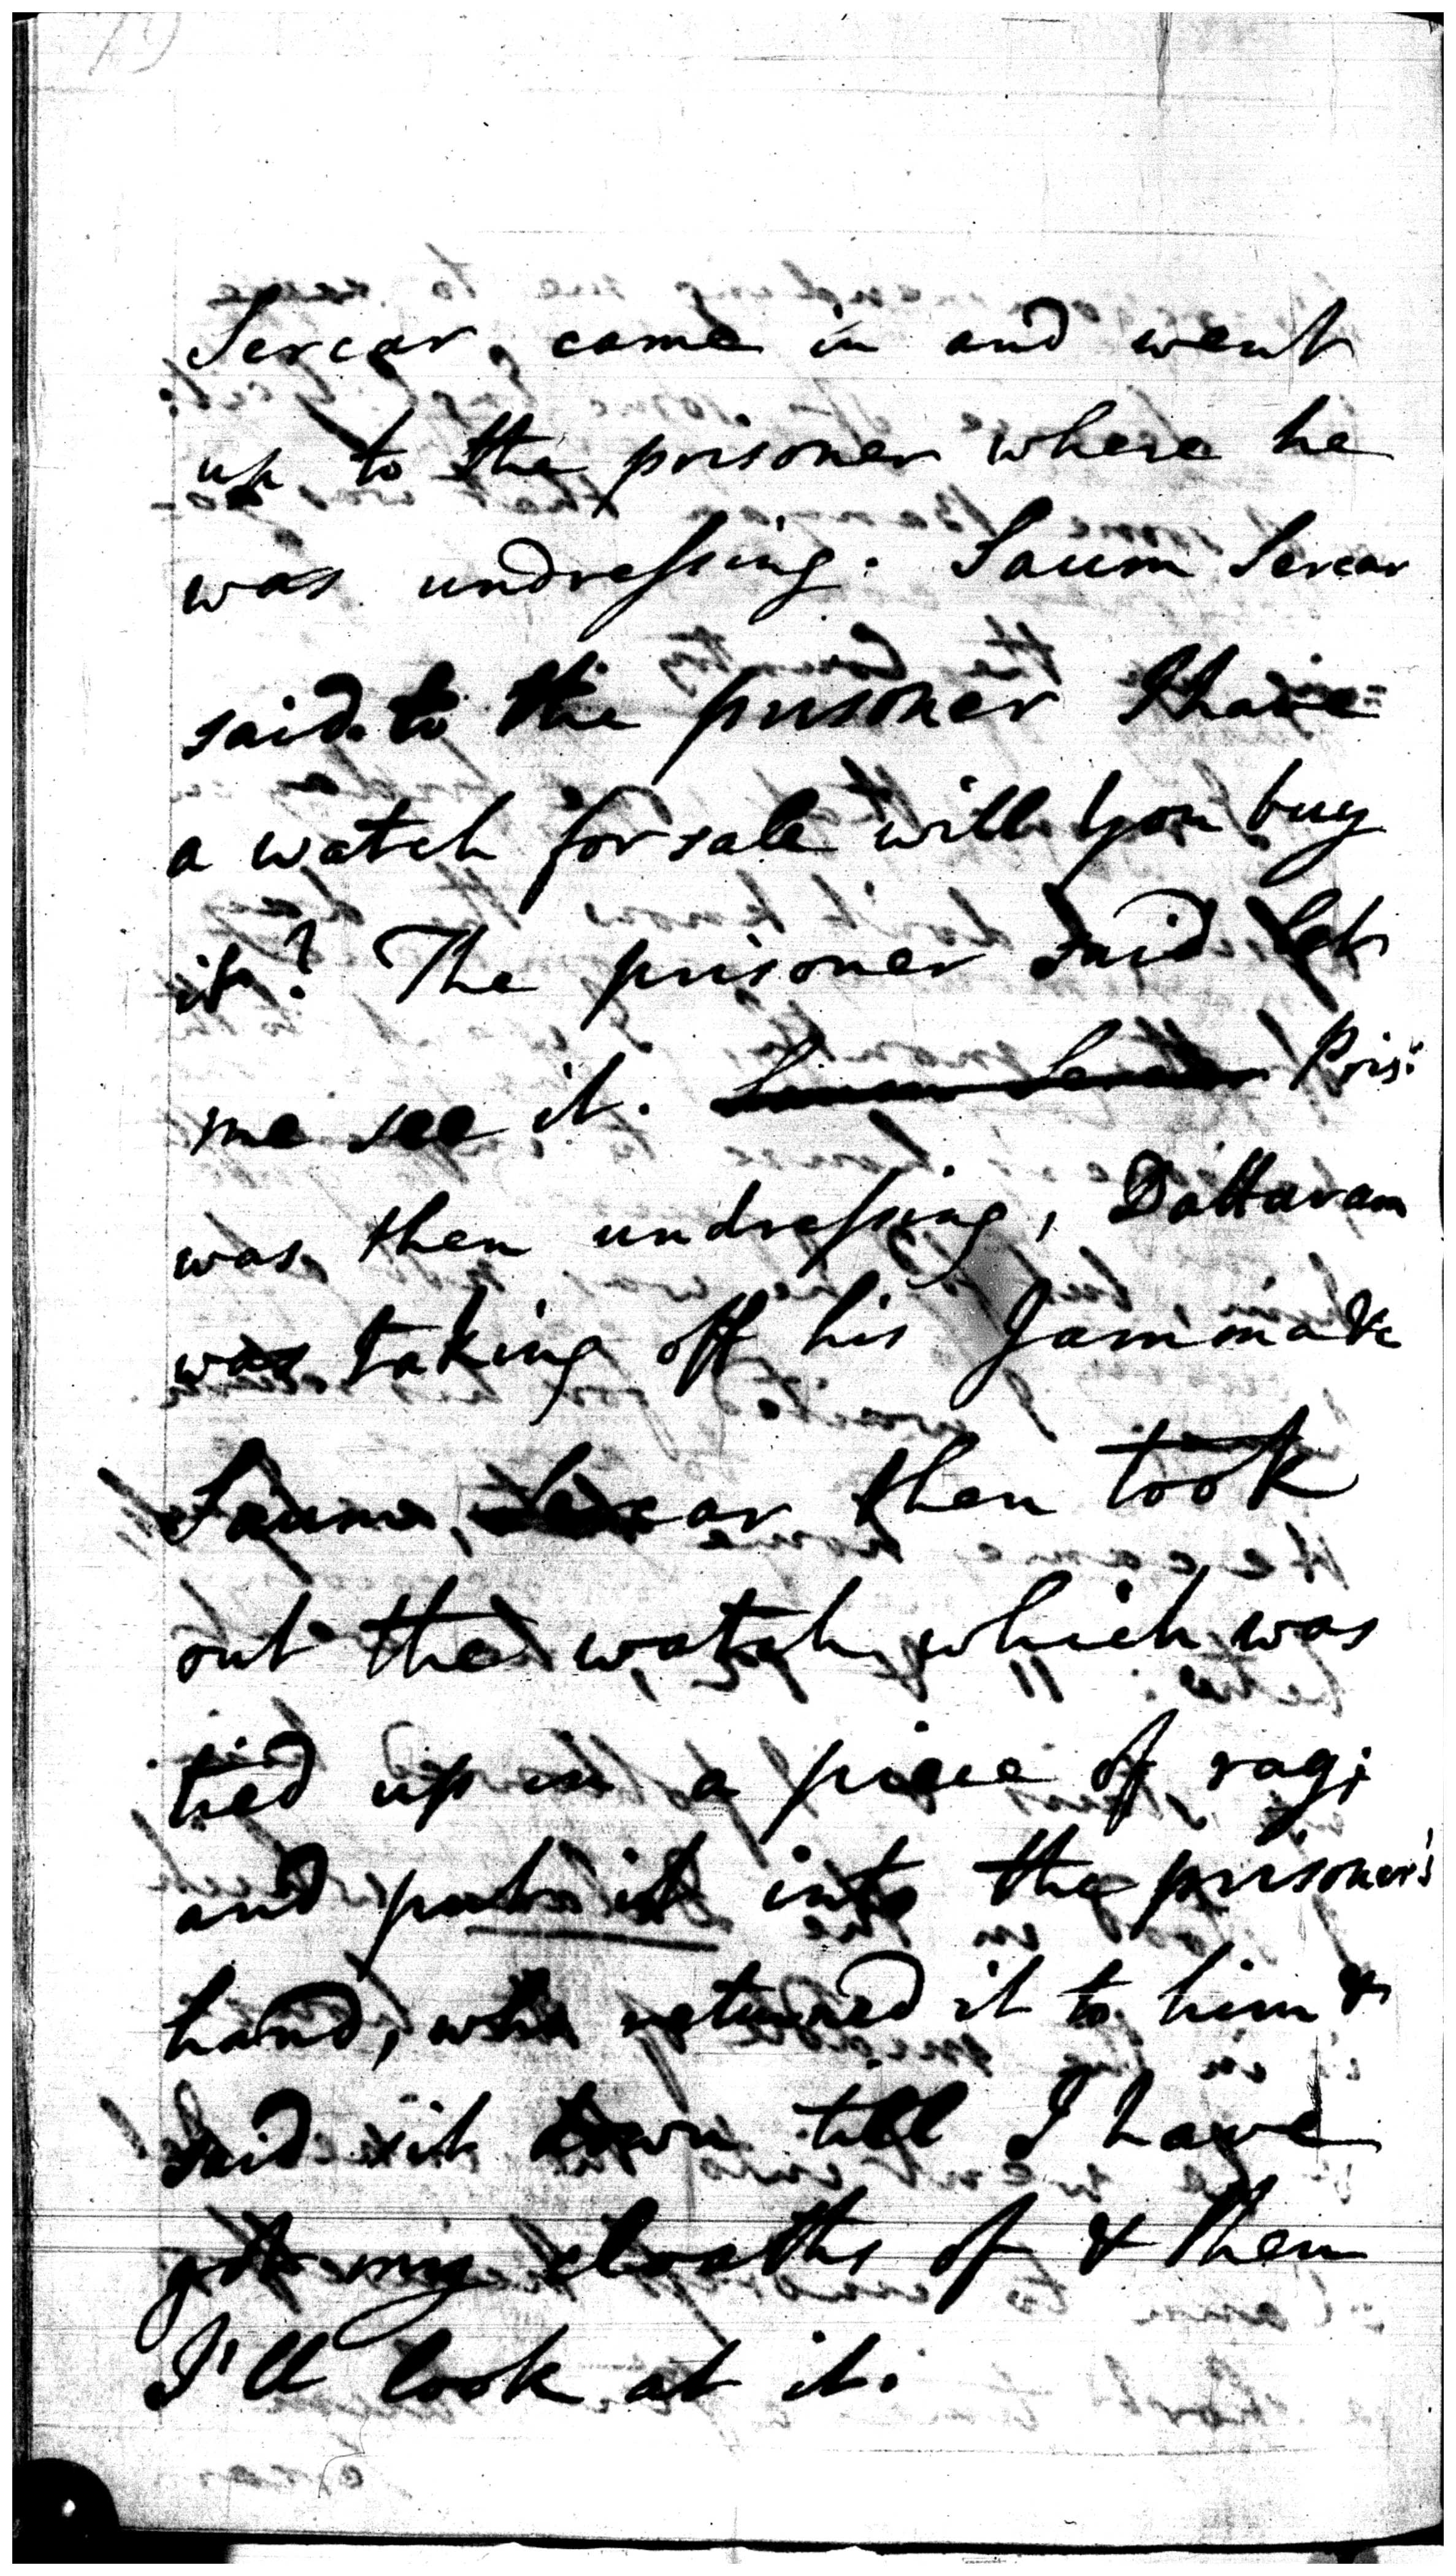 Sercar, came in and went
up to the prisoner where he
was undressing. Saum Sercar
said to the prisoner I have
a watch for sale will you buy
it? The prisoner said let
me see it. Pris:r
was then undressing, Dattaram
was taking off his Jamma &
Saum, Sercar then took
out the watch, which was
tied up in a piece of rag;
and put it into the prisoner's
hand, who returned it to him &
said it down till I have
got my cloaths of & then
I'll look at it.